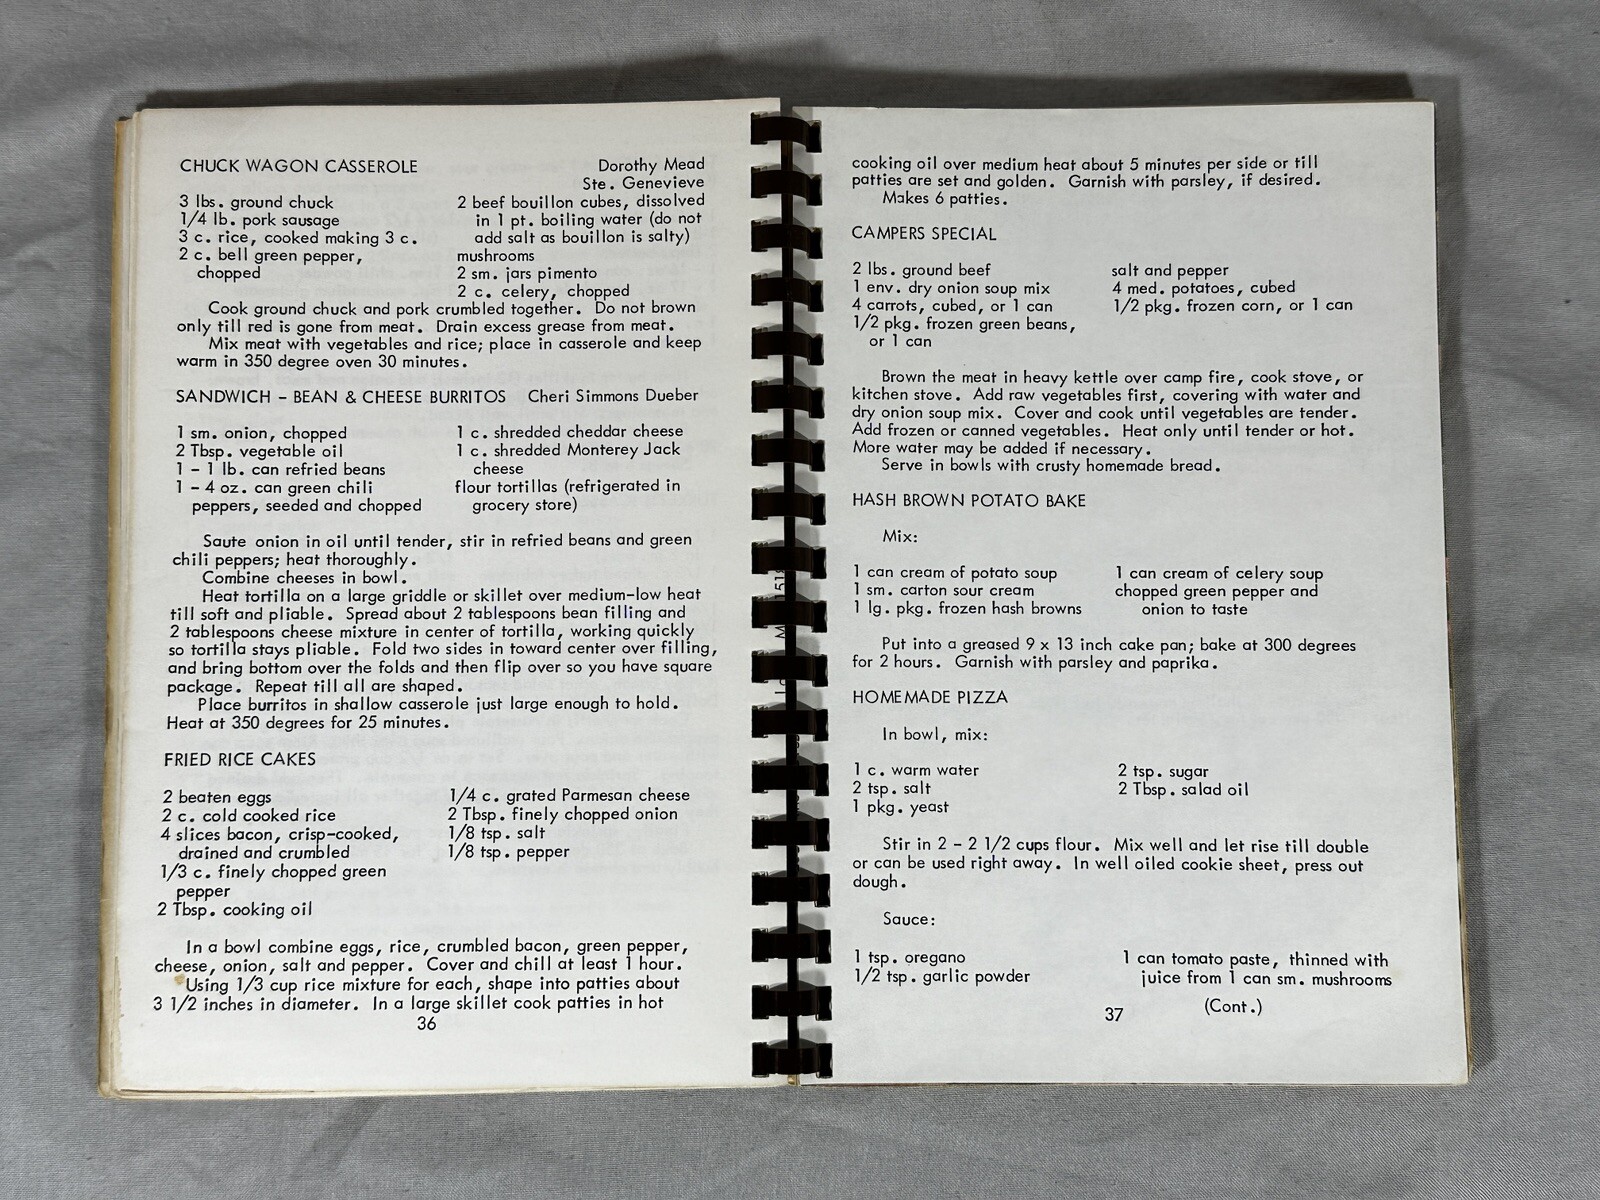 CHUCK WAGON CASSEROLE Dorothy Mead
Ste. Genevieve
3 lbs. ground chuck
1/4 lb. pork sausage
3 c. rice, cooked making 3 c.
2 c. bell green pepper,
chopped
2 beef bouillon cubes, dissolved
in 1 pt. boiling water (do not
add salt as bouillon is salty)
mushrooms
2 sm. jars pimento
2 c. celery, chopped
Cook ground chuck and pork crumbled together. Do not brown
only till red is gone from meat. Drain excess grease from meat.
Mix meat with vegetables and rice; place in casserole and keep
warm in 350 degree oven 30 minutes.
SANDWICH - BEAN & CHEESE BURRITOS Cheri Simmons Dueber
1 sm. onion, chopped
2 Tbsp. vegetable oil
1 - 1 lb. can refried beans
1 - 4 oz. can green chili
peppers, seeded and chopped
1 c. shredded cheddar cheese
1 c. shredded Monterey Jack
cheese
flour tortillas (refrigerated in
grocery store)
Saute onion in oil until tender, stir in refried beans and green
chili peppers; heat thoroughly.
Combine cheeses in bowl.
Heat tortilla on a large griddle or skillet over medium-low heat
till soft and pliable. Spread about 2 tablespoons bean filling and
2 tablespoons cheese mixture in center of tortilla, working quickly
so tortilla stays pliable. Fold two sides in toward center over filling,
and bring bottom over the folds and then flip over so you have square
package. Repeat till all are shaped.
Place burritos in shallow casserole just large enough to hold.
Heat at 350 degrees for 25 minutes.
FRIED RICE CAKES
2 beaten eggs
2 c. cold cooked rice
4 slices bacon, crisp-cooked,
drained and crumbled
1/3 c. finely chopped green
pepper
2 Tbsp. cooking oil
1/4 c. grated Parmesan cheese
2 Tbsp. finely chopped onion
1/8 tsp. salt
1/8 tsp. pepper
In a bowl combine eggs, rice, crumbled bacon, green pepper,
cheese, onion, salt and pepper. Cover and chill at least 1 hour.
Using 1/3 cup rice mixture for each, shape into patties about
3 1/2 inches in diameter. In a large skillet cook patties in hot
36
cooking oil over medium heat about 5 minutes per side or till
patties are set and golden. Garnish with parsley, if desired.
Makes 6 patties.
CAMPERS SPECIAL
2 lbs. ground beef
1 env. dry onion soup mix
4 carrots, cubed, or 1 can
1/2 pkg. frozen green beans,
or 1 can
salt and pepper
4 med. potatoes, cubed
1/2 pkg. frozen corn, or 1 can
Brown the meat in heavy kettle over camp fire, cook stove, or
kitchen stove. Add raw vegetables first, covering with water and
dry onion soup mix. Cover and cook until vegetables are tender.
Add frozen or canned vegetables. Heat only until tender or hot.
More water may be added if necessary.
Serve in bowls with crusty homemade bread.
HASH BROWN POTATO BAKE
Mix:
1 can cream of potato soup
1 sm. carton sour cream
1 lg. pkg. frozen hash browns
1 can cream of celery soup
chopped green pepper and
onion to taste
Put into a greased 9 x 13 inch cake pan; bake at 300 degrees
for 2 hours. Garnish with parsley and paprika.
HOMEMADE PIZZA
In bowl, mix:
1 c. warm water
2 tsp. salt
1 pkg. yeast
2 tsp. sugar
2 Tbsp. salad oil
Stir in 2 - 2 1/2 cups flour. Mix well and let rise till double
or can be used right away. In well oiled cookie sheet, press out
dough.
Sauce:
1 tsp. oregano
1/2 tsp. garlic powder
1 can tomato paste, thinned with
juice from 1 can sm. mushrooms
(Cont.)
37